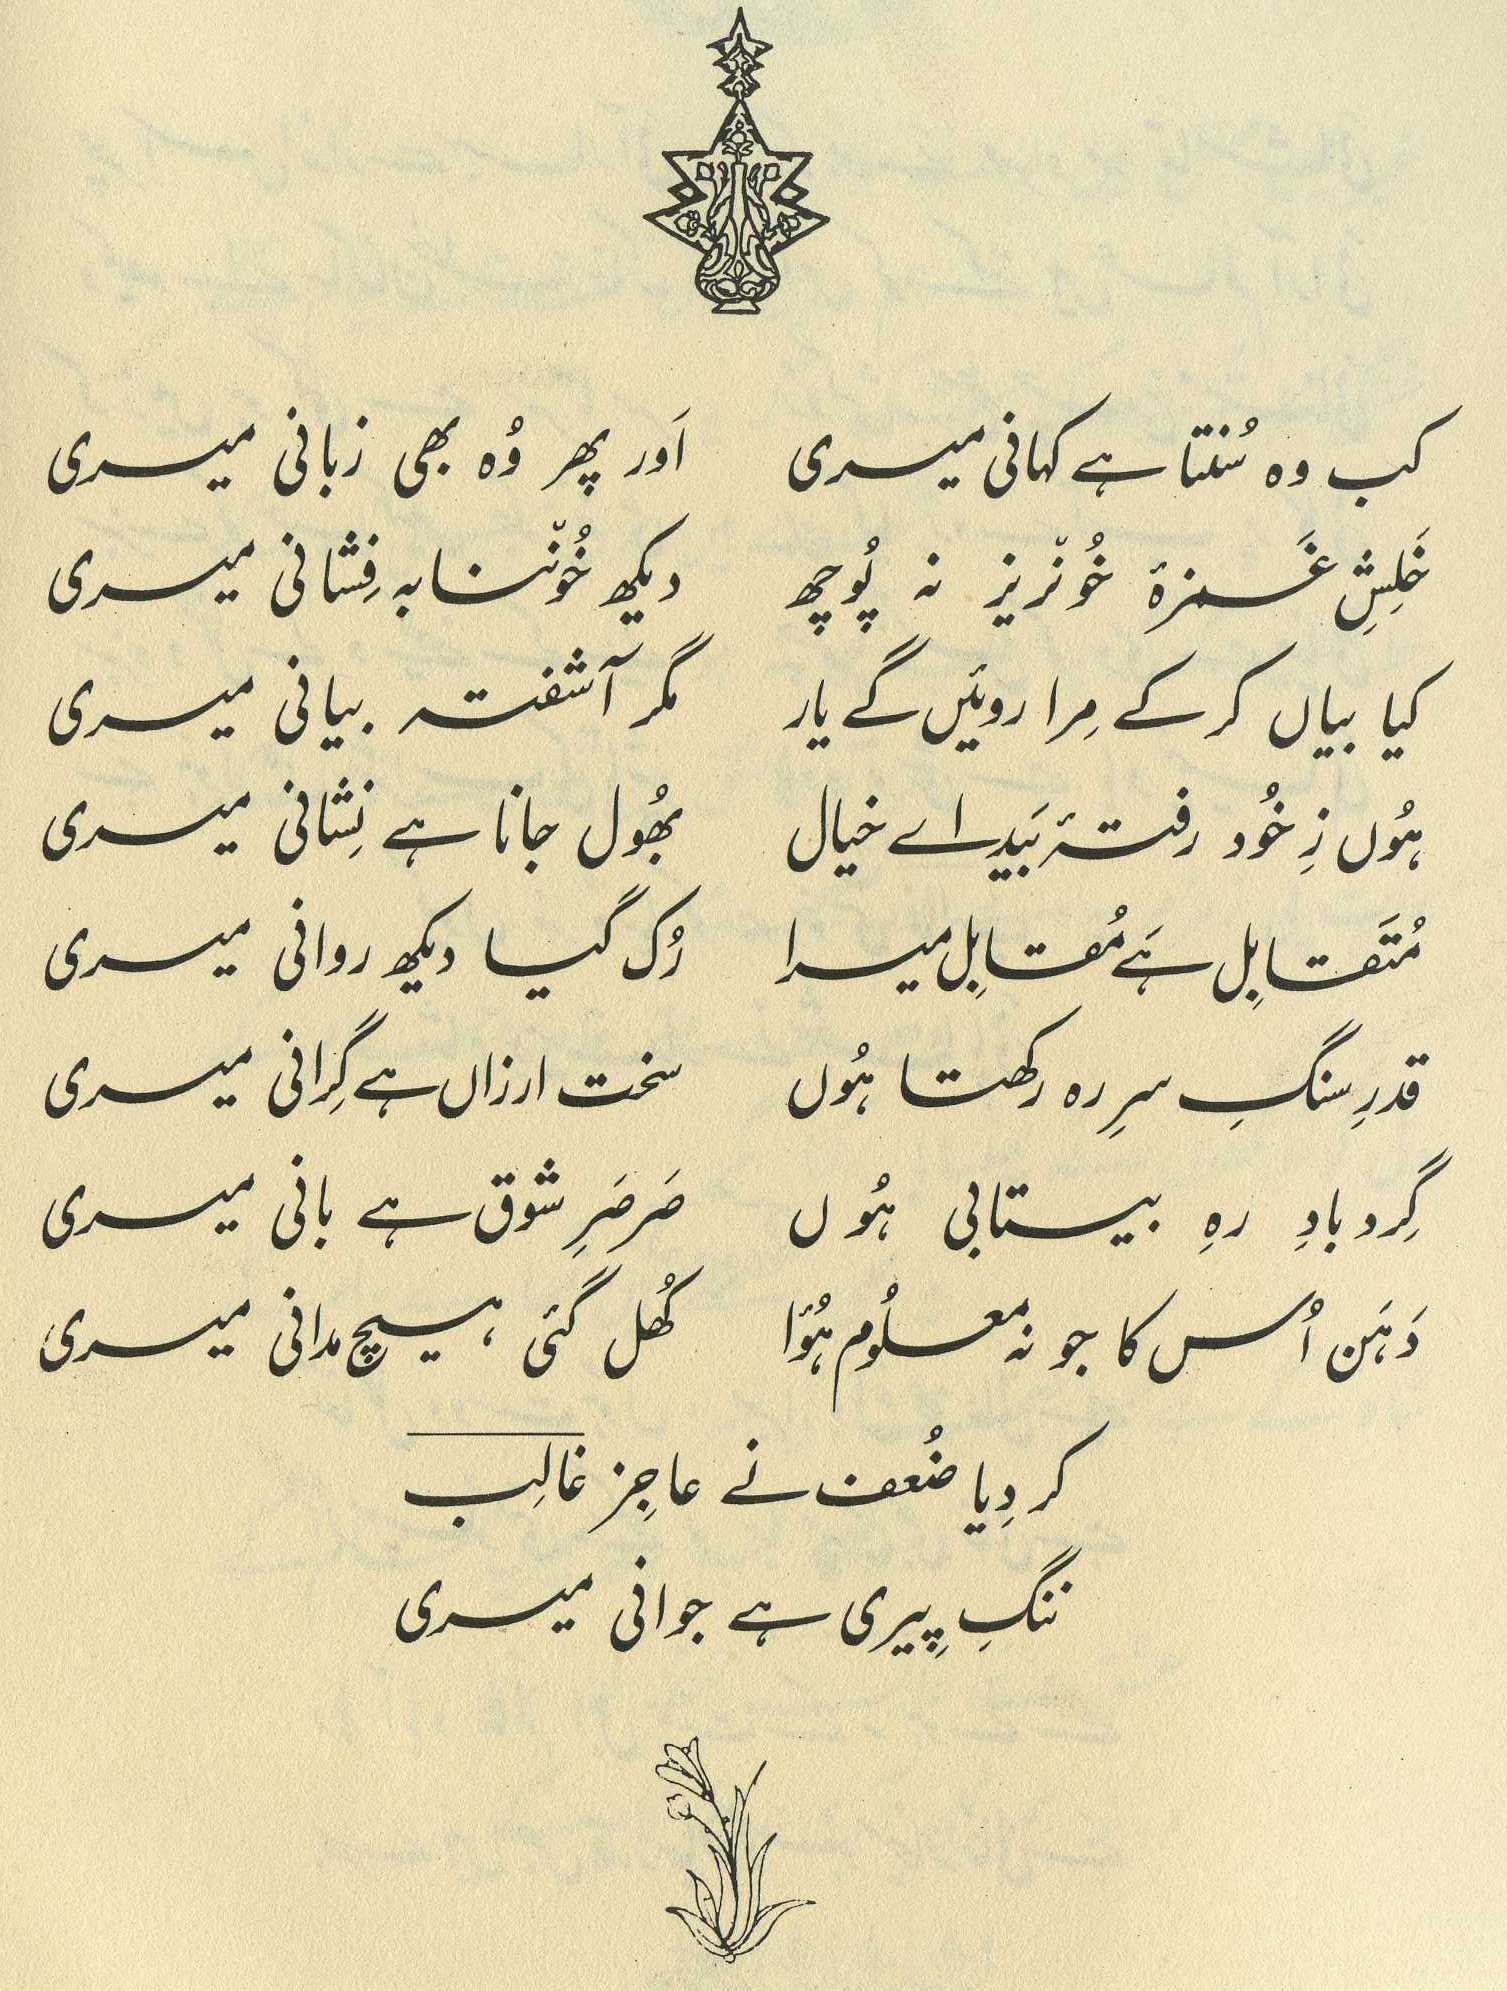 کب وہ سُنتا ہے کہانی میری اَور پھر وُہ بھی زبانی میری
خَلِشِ غَمزۂ خُوں٘ریز نہ پُوچھ دیکھ خُوں٘نابہ فِشانی میری
کیا بیاں کر کے مِرا روئیں گے یار مگر آشفتہ بیانی میری
ہُوں زِ خُود رفتۂ بَیدائے خیال بھُول جانا ہے نِشانی میری
مُتَقابِل ہَے مُقابِل میرا رُک گیا دیکھ روانی میری
قدرِ سنگِ سرِ رہ رکھتا ہُوں سخت ارزاں ہے گِرانی میری
گِرد بادِ رہِ بیتابی ہُوں صَرصَرِ شوق ہے بانی میری
دَہَن اُس کا جو نہ معلُوم ہُوٴا کھُل گئی ہیچ مدانی میری
کر دِیا ضُعف نے عاجِز غالِب
ننگِ پِیری ہے جوانی میری